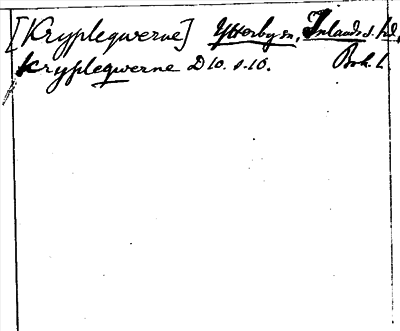 [Kryplegwerne] Ytterby sn, Inlands s. hd,
Kryplegwerne D 10. s. 16. Boh. l.